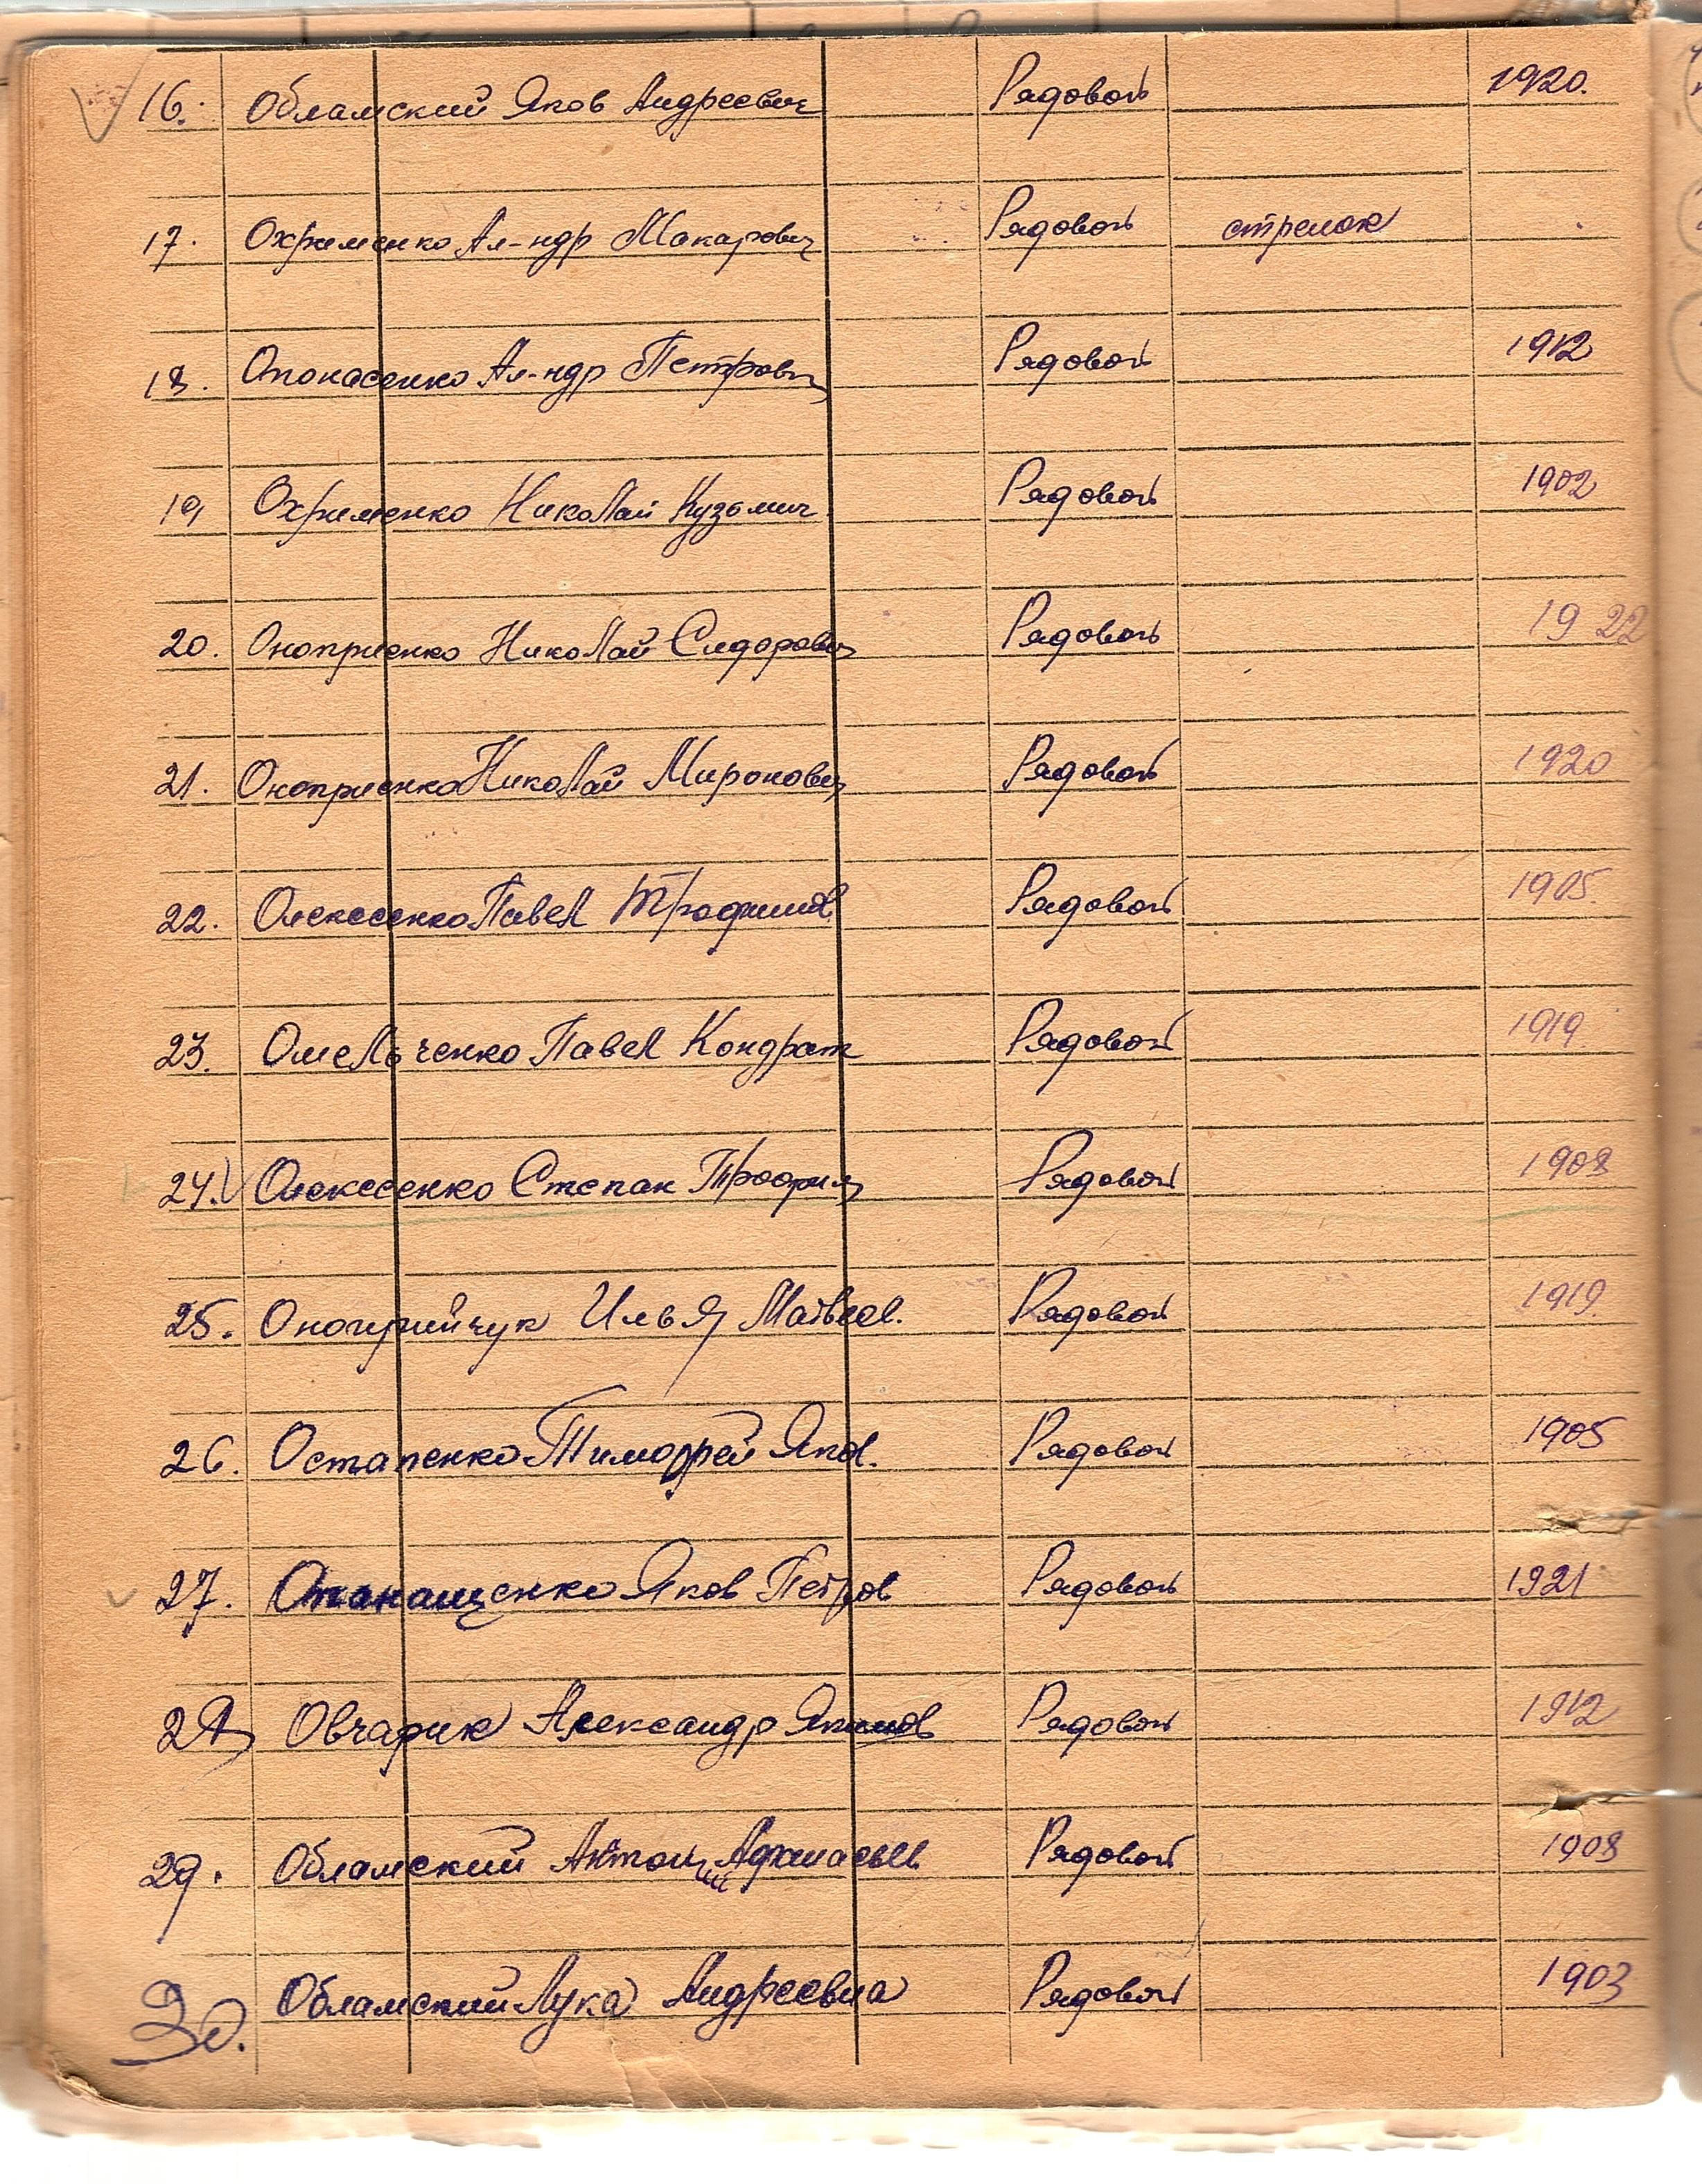 16. Обламский Яков Андреевич Рядовой 1920.
17. Охрименко Ал-ндр Макарович Рядовой стрелок
18. Опонасенко Ал-ндр Петрович Рядовой 1912
19 Охрименко Николай Кузьмич Рядовой 1902
20. Оноприенко Николай Сидорович Рядовой 1922
21. Оноприенко Николай Миронович Рядовой 1920
22. Олексеенко Павел Трофимов. Рядовой 1905.
23. Омельченко Павел Кондрат Рядовой 1919
24. Олексеенко Степан Трофим Рядовой 1908
25. Оногрийчук Илья Матвеев. Рядовой 1919
26. Остапенко Тимофей Яков. Рядовой 1905
27. Опанащенко Яков Петров Рядовой 1921
28 Овчарик Александр Якимов Рядовой 1912
29. Обламский Антон Афанасьев Рядовой 1908
30. Обламский Лука Андреевич Рядовой 1903